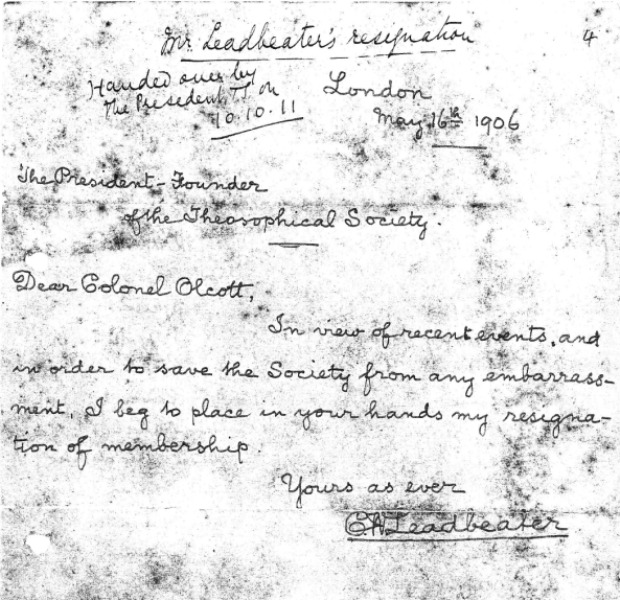 Mr. Leadbeater's resignation
4
Handed over by
The President T.S. on
10.10.11
London
May 16th 1906
The President-Founder
of the Theosophical Society.
Dear Colonel Olcott,
In view of recent events, and
in order to save the Society from any embarrass-
ment, I beg to place in your hands my resigna-
tion of membership.
Yours as ever
C.W. Leadbeater